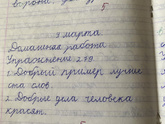 5
3 марта
Домашняя работа
Упражнение 279.
1. Добрый пример лучше
ста слов.
2. Добрые дела человека
красят.